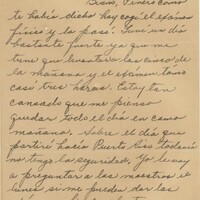 Bueno, Piñero como
te había dicho hoy cogí el exámen
físico y lo pasé. Tuve un día
bastante fuerte ya que me
tuve que levantar a las cinco de
la mañana y el exámen tomó
casi tres horas. Estoy tan
cansado que me pienso
quedar todo el día en cama
mañana. Sobre el día que
partiré hacia Puerto Rico todavía
no tengo la seguridad. Yo le voy
a preguntar a los maestros el
lunes si me pueden dar las